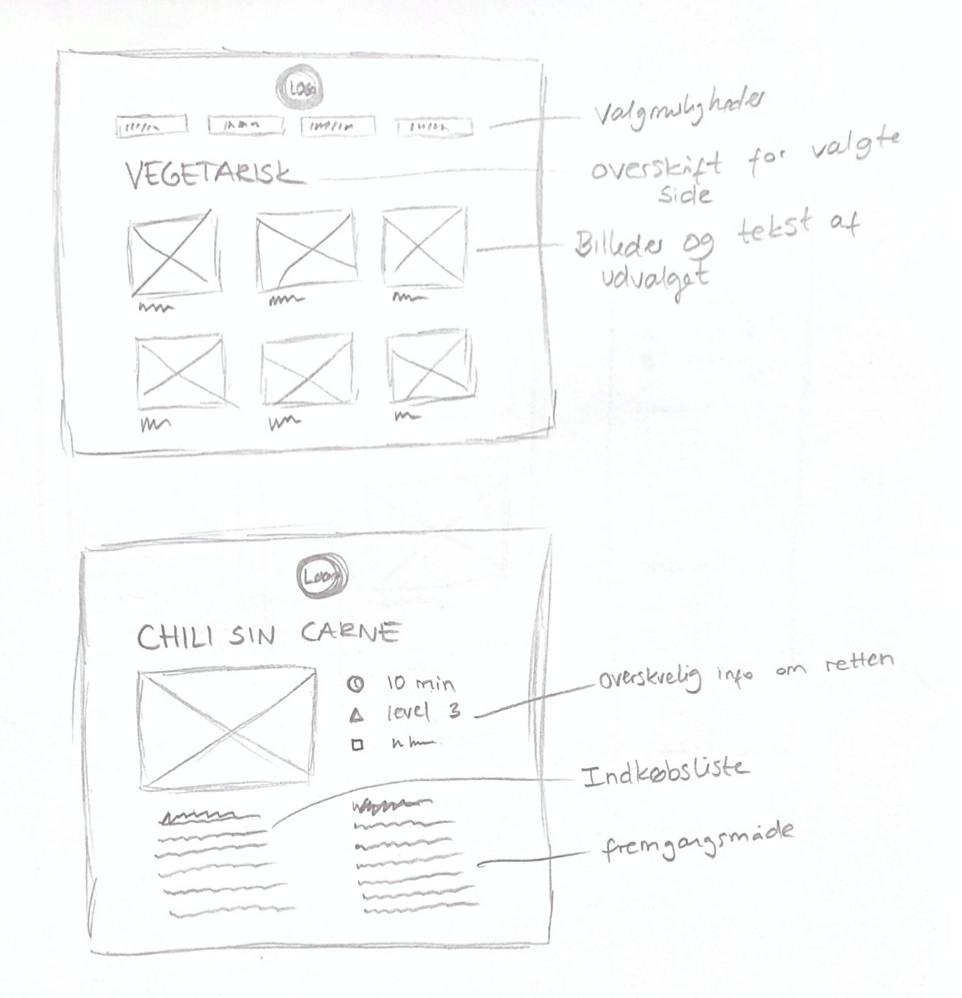 LOGO
Valgmuligheder
VEGETARISK
overskift for valgte
side
Billeder og tekst af
udvalget
Logo
CHILI SIN CARNE
10 min
level 3
overskuelig info om retten
Indkøbsliste
fremgangsmåde